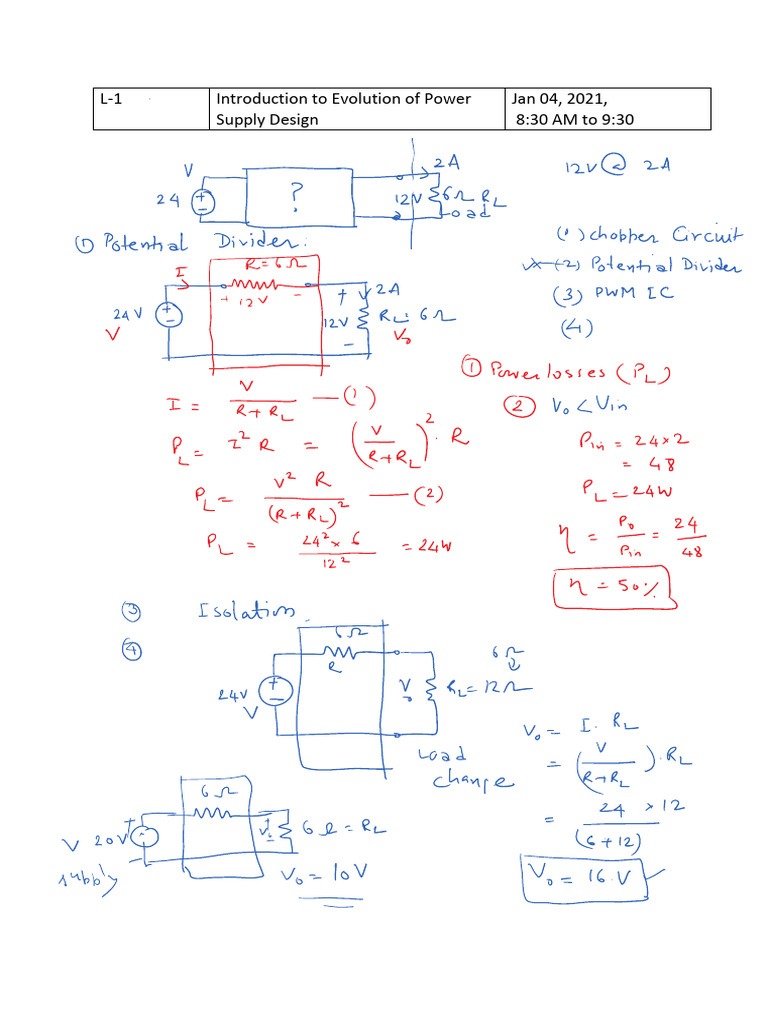 L-1
Introduction to Evolution of Power Supply Design
Jan 04, 2021,
8:30 AM to 9:30
V
24
+
−
?
2A
12V
6Ω RL
Load
12V @ 2A
① Potential Divider.
(1) chopper Circuit
(2) Potential Divider
(3) PWM IC
(4)
R = 6Ω
I
+ 12V −
24V
V
+ 2A
12V
RL = 6Ω
−
Vo
① Power losses (PL)
② Vo < Vin
I = V / (R + RL) — (1)
PL = I² R = (V / (R + RL))² · R
PL = V² R / (R + RL)² — (2)
PL = 24² × 6 / 12² = 24W
Pin = 24 × 2
= 48
PL = 24W
η = Po / Pin = 24 / 48
η = 50%
③ Isolation.
④
6Ω
R
24V
V
+
−
Vo
6Ω
RL = 12Ω
Load
change
Vo = I · RL
= (V / (R + RL)) · RL
= 24 × 12 / (6 + 12)
Vo = 16 V
6Ω
V 20V
+
−
supply
+
Vo
−
6Ω = RL
Vo = 10V